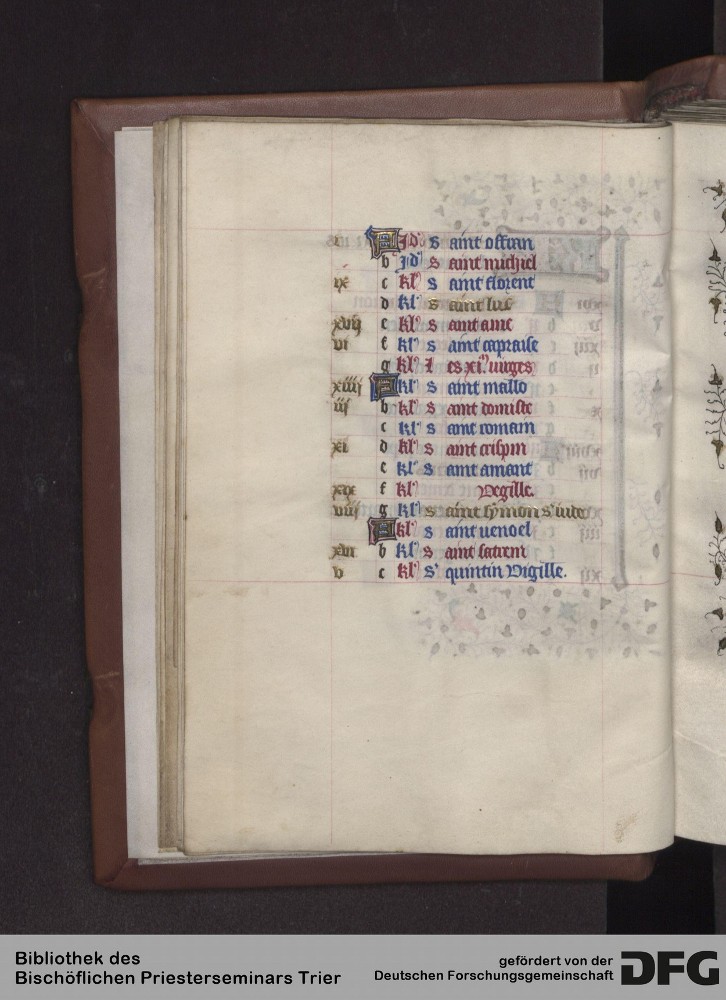 A Id' S aint offrin
b Id' S aint michiel
ix c kl' S aint florent
d kl' S aint luc
xvii e kl' S aint amé
vi f kl' S aint capraise
g kl' L es xi.m virges
xiiii A kl' S aint mallo
iii b kl' S aint
c kl' S aint romain
xi d kl' S aint crispin
e kl' S aint amant
xix f kl' Vegille.
viii g kl' S aint symon s' iude
A kl' S aint
xvi b kl' S aint
v c kl' S' quintin Vigille.
Bibliothek des
Bischöflichen Priesterseminars Trier
gefördert von der
Deutschen Forschungsgemeinschaft
DFG